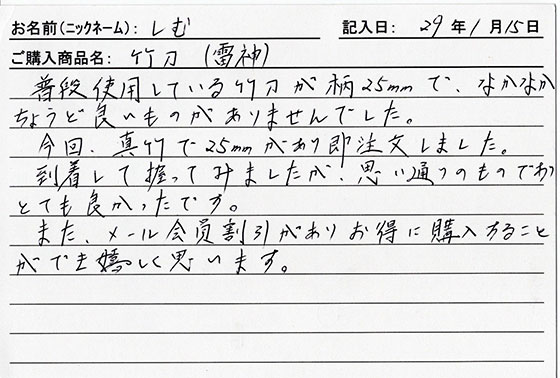 お名前(ニックネーム): しむ 記入日: 29年1月15日
ご購入商品名: 竹刀 (雷神)
普段使用している竹刀が柄25mmで、なかなか
ちょうど良いものがありませんでした。
今回、真竹で25mmがあり即注文しました。
到着して握ってみましたが、思い通りのものであり
とても良かったです。
また、メール会員割引がありお得に購入すること
ができ嬉しく思います。